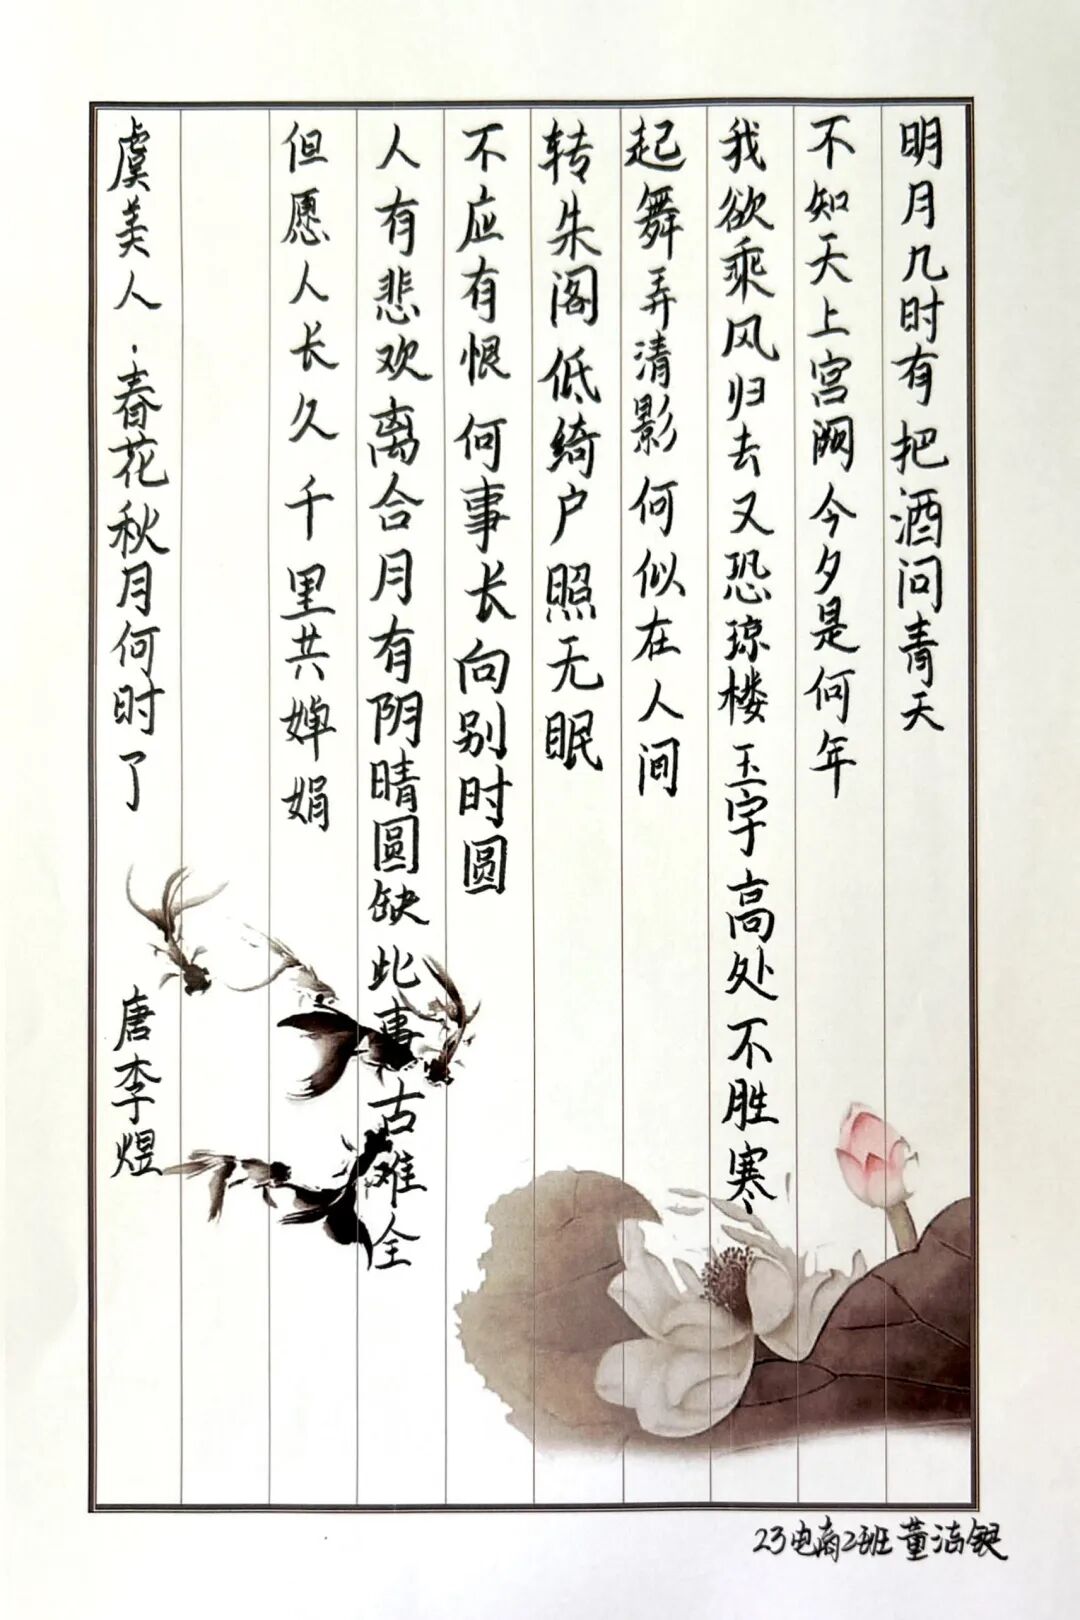 明月几时有把酒问青天
不知天上宫阙今夕是何年
我欲乘风归去又恐琼楼玉宇高处不胜寒
起舞弄清影何似在人间
转朱阁低绮户照无眠
不应有恨何事长向别时圆
人有悲欢离合月有阴晴圆缺此事古难全
但愿人长久千里共婵娟
虞美人·春花秋月何时了 唐李煜
23电商2班董洁银